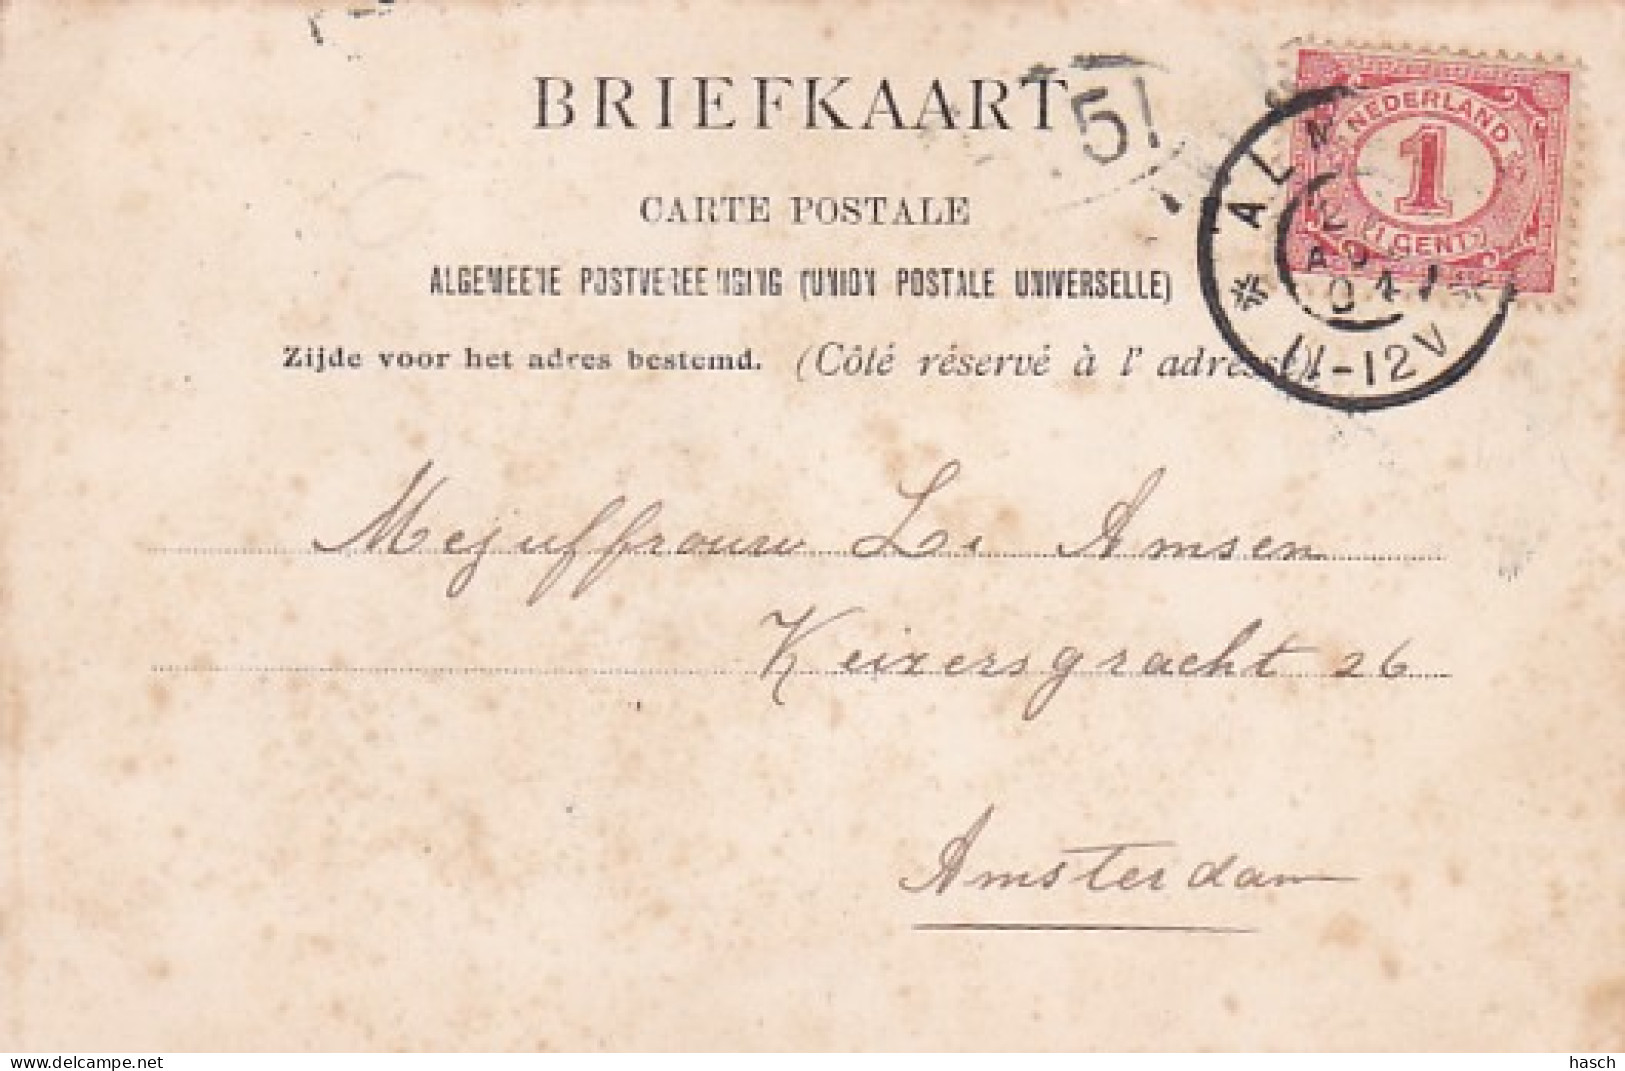 BRIEFKAART
51
CARTE POSTALE
ALGEMEENE POSTVEREENIGING (UNION POSTALE UNIVERSELLE)
Zijde voor het adres bestemd. (Côté réservé à l' adresse).
NEDERLAND
1
CENT
ALM
04
11-12V
Mejuffrouw L. Amsen
Keizersgracht 26
Amsterdam
delcampe.net
hasch